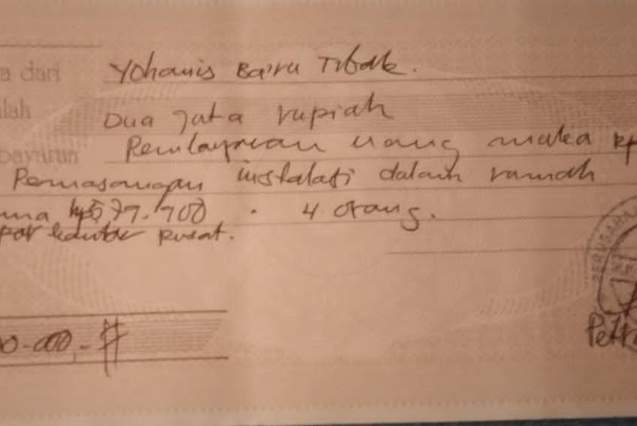 a dari Yohanis Bairu Tibak.
lah Dua Juta rupiah
bayaran Pembayaran uang muka Rp
Pemasangan instalasi dalam rumah
ma 577.700 . 4 orang.
por kantor pusat.
0-000,-#
PERUSAHA
Petr